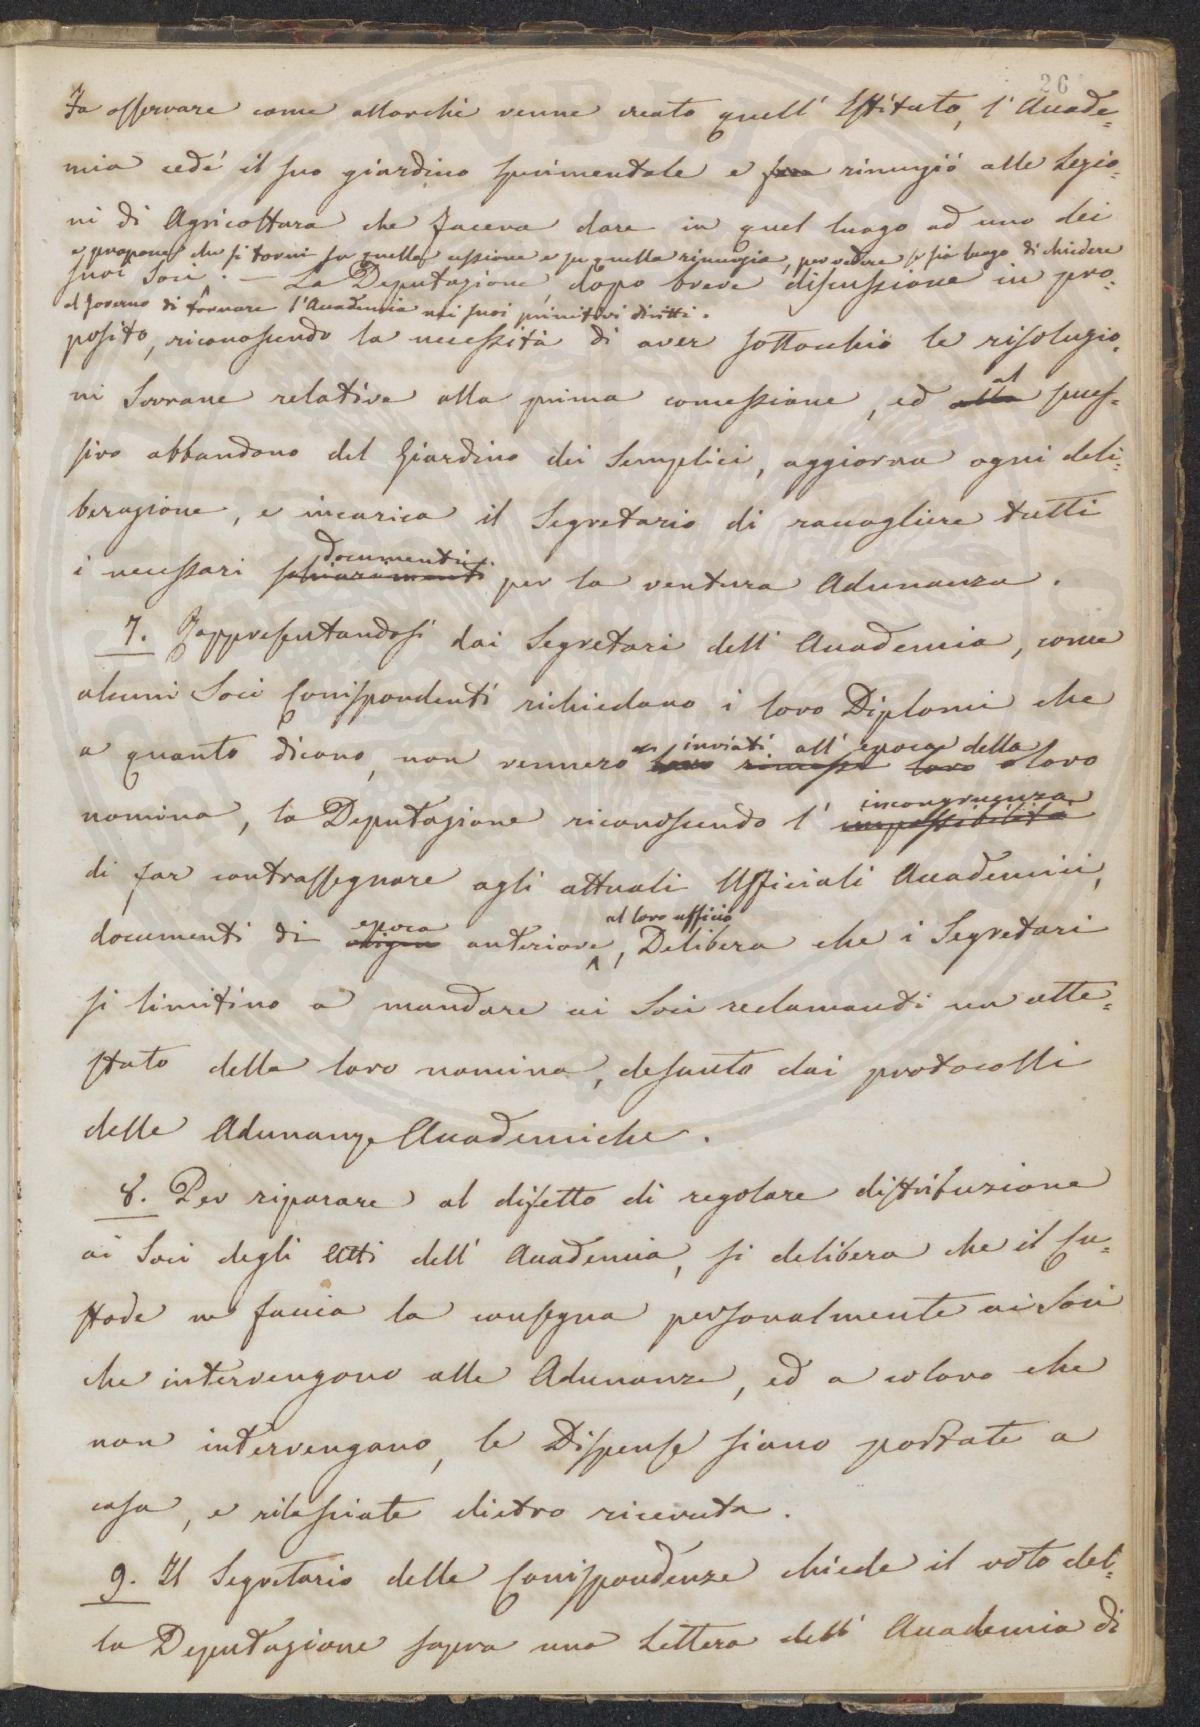 26
Fa osservare come allorchè venne creato quell' Istituto, l'Accade=
mia cedè il suo giardino sperimentale e rinunziò alle Lezio=
ni di Agricoltura che faceva dare in quel luogo ad uno dei
e propone che si torni su quella cessione e su quella rinunzia, per vedere se sia luogo di chiedere
suoi Soci. — La Deputazione, dopo breve discussione in pro=
al Governo di tornare l'Accademia nei suoi primitivi diritti.
posito, riconoscendo la necessità di aver sottocchio le risoluzio=
al
ni Sovrane relative alla prima concessione, ed alla succes=
sivo abbandono del Giardino dei Semplici, aggiorna ogni deli=
berazione, e incarica il Segretario di raccogliere tutti
documenti
i necessari schiarimenti per la ventura Adunanza.
7. Rappresentandosi dai Segretari dell' Accademia, come
alcuni Soci Corrispondenti richiedano i loro Diplomi che
inviati all' epoca della
a quanto dicono, non vennero loro rimessi loro loro
incongruenza
nomina, la Deputazione riconoscendo l' impossibilità
di far contrassegnare agli attuali Ufficiali Accademici,
epoca al loro ufficio
documenti di origine anteriore, Delibera che i Segretari
si limitino a mandare ai Soci reclamanti un atte=
stato della loro nomina, desunto dai protocolli
delle Adunanze Accademiche.
8. Per riparare al difetto di regolare distribuzione
ai Soci degli Atti dell' Accademia, si delibera che il Cu=
stode ne faccia la consegna personalmente ai Soci
che intervengono alle Adunanze, ed a coloro che
non intervengano, le Dispense siano portate a
casa, e rilasciate dietro ricevuta.
9. Il Segretario delle Corrispondenze chiede il voto del=
la Deputazione sopra una Lettera dell' Accademia di